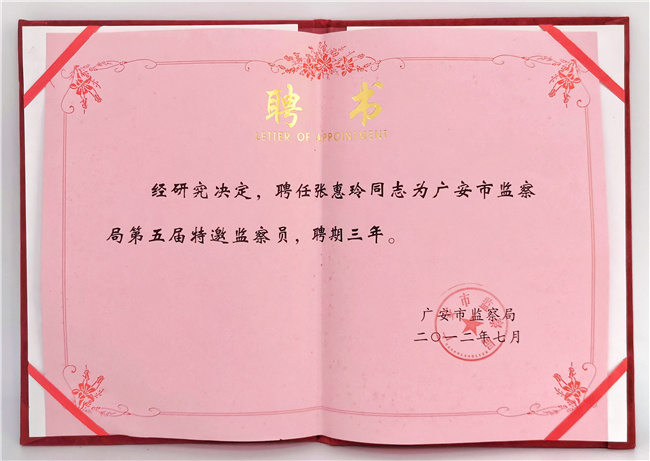 聘书
LETTER OF APPOINTMENT
经研究决定，聘任张惠玲同志为广安市监察
局第五届特邀监察员，聘期三年。
广安市监察局
二〇一二年七月